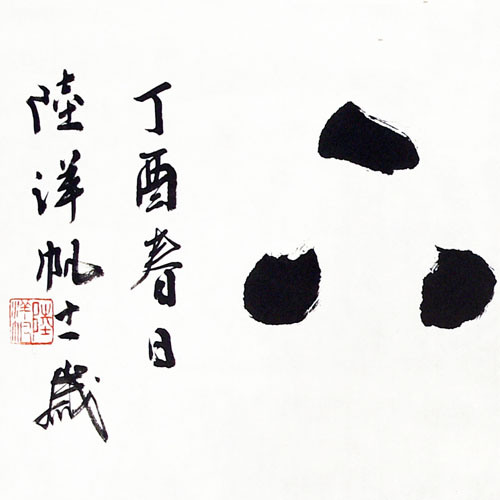 丁酉春日
陸洋帆十一歲
陸洋帆